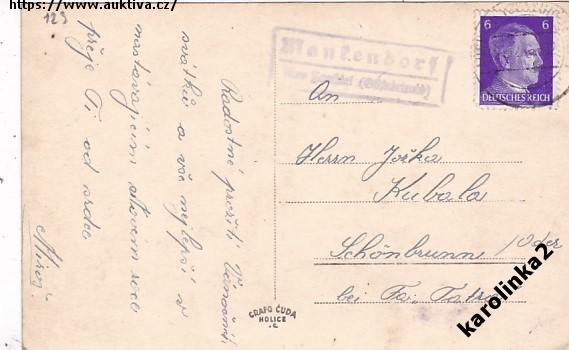 https://www.auktiva.cz/
123
Radostné prožití Vánočních
svátků a vše nejlepší v
nastávajícím Novém roce
přeje Ti od srdce
Mankendorf
(Sudetenland)
6 6
DEUTSCHES REICH
An
Herrn Jožka
Kubala
Schönbrunn /Oder
bei Fa. Tatra
GRAFO ČUDA
HOLICE
karolinka2